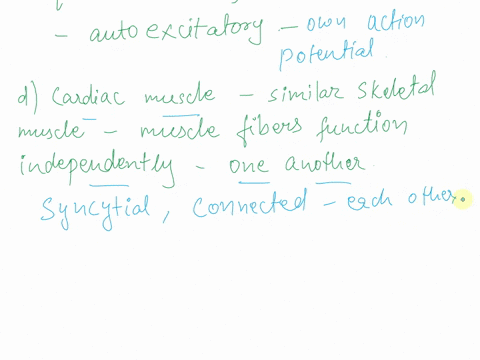 - auto excitatory - own action
potential
d) Cardiac muscle - similar skeletal
muscle - muscle fibers function
independently - one another.
Syncytial, Connected - each other